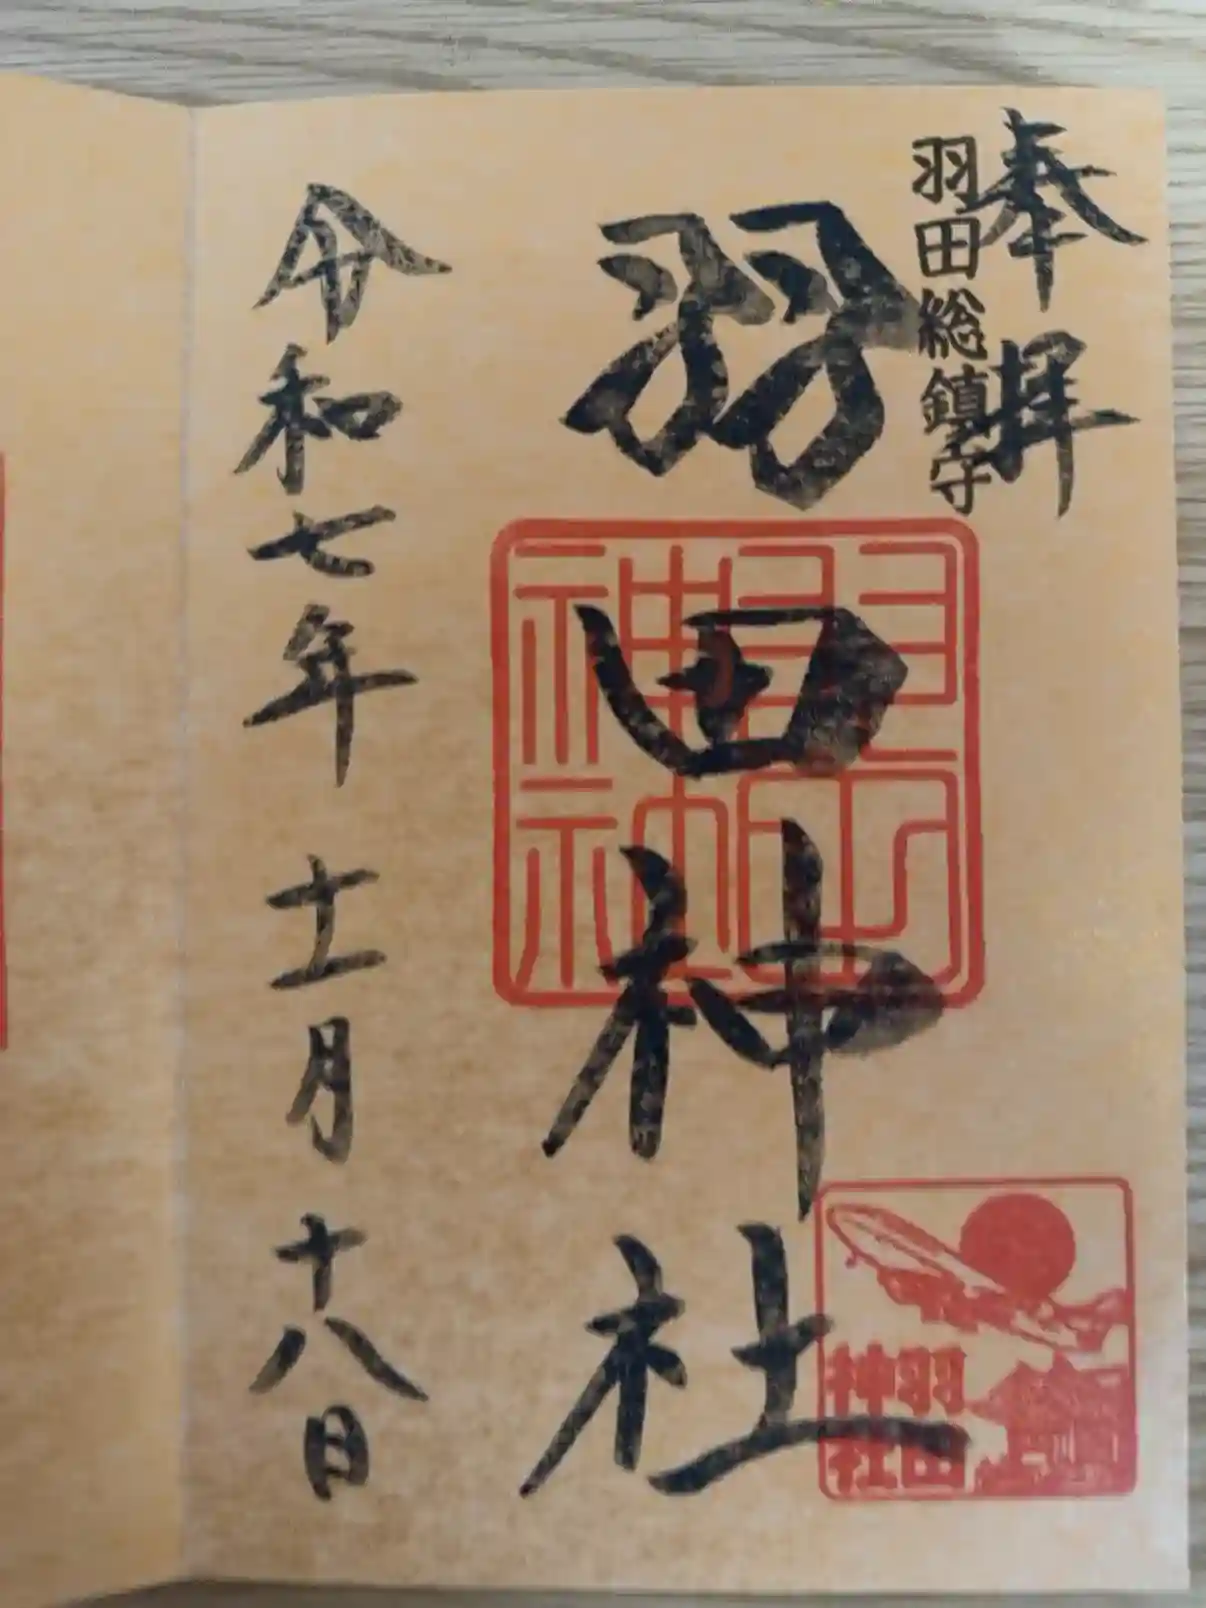 奉拝
羽田総鎮守
羽田神社
羽田神社
羽田
神社
令和七年十一月十八日